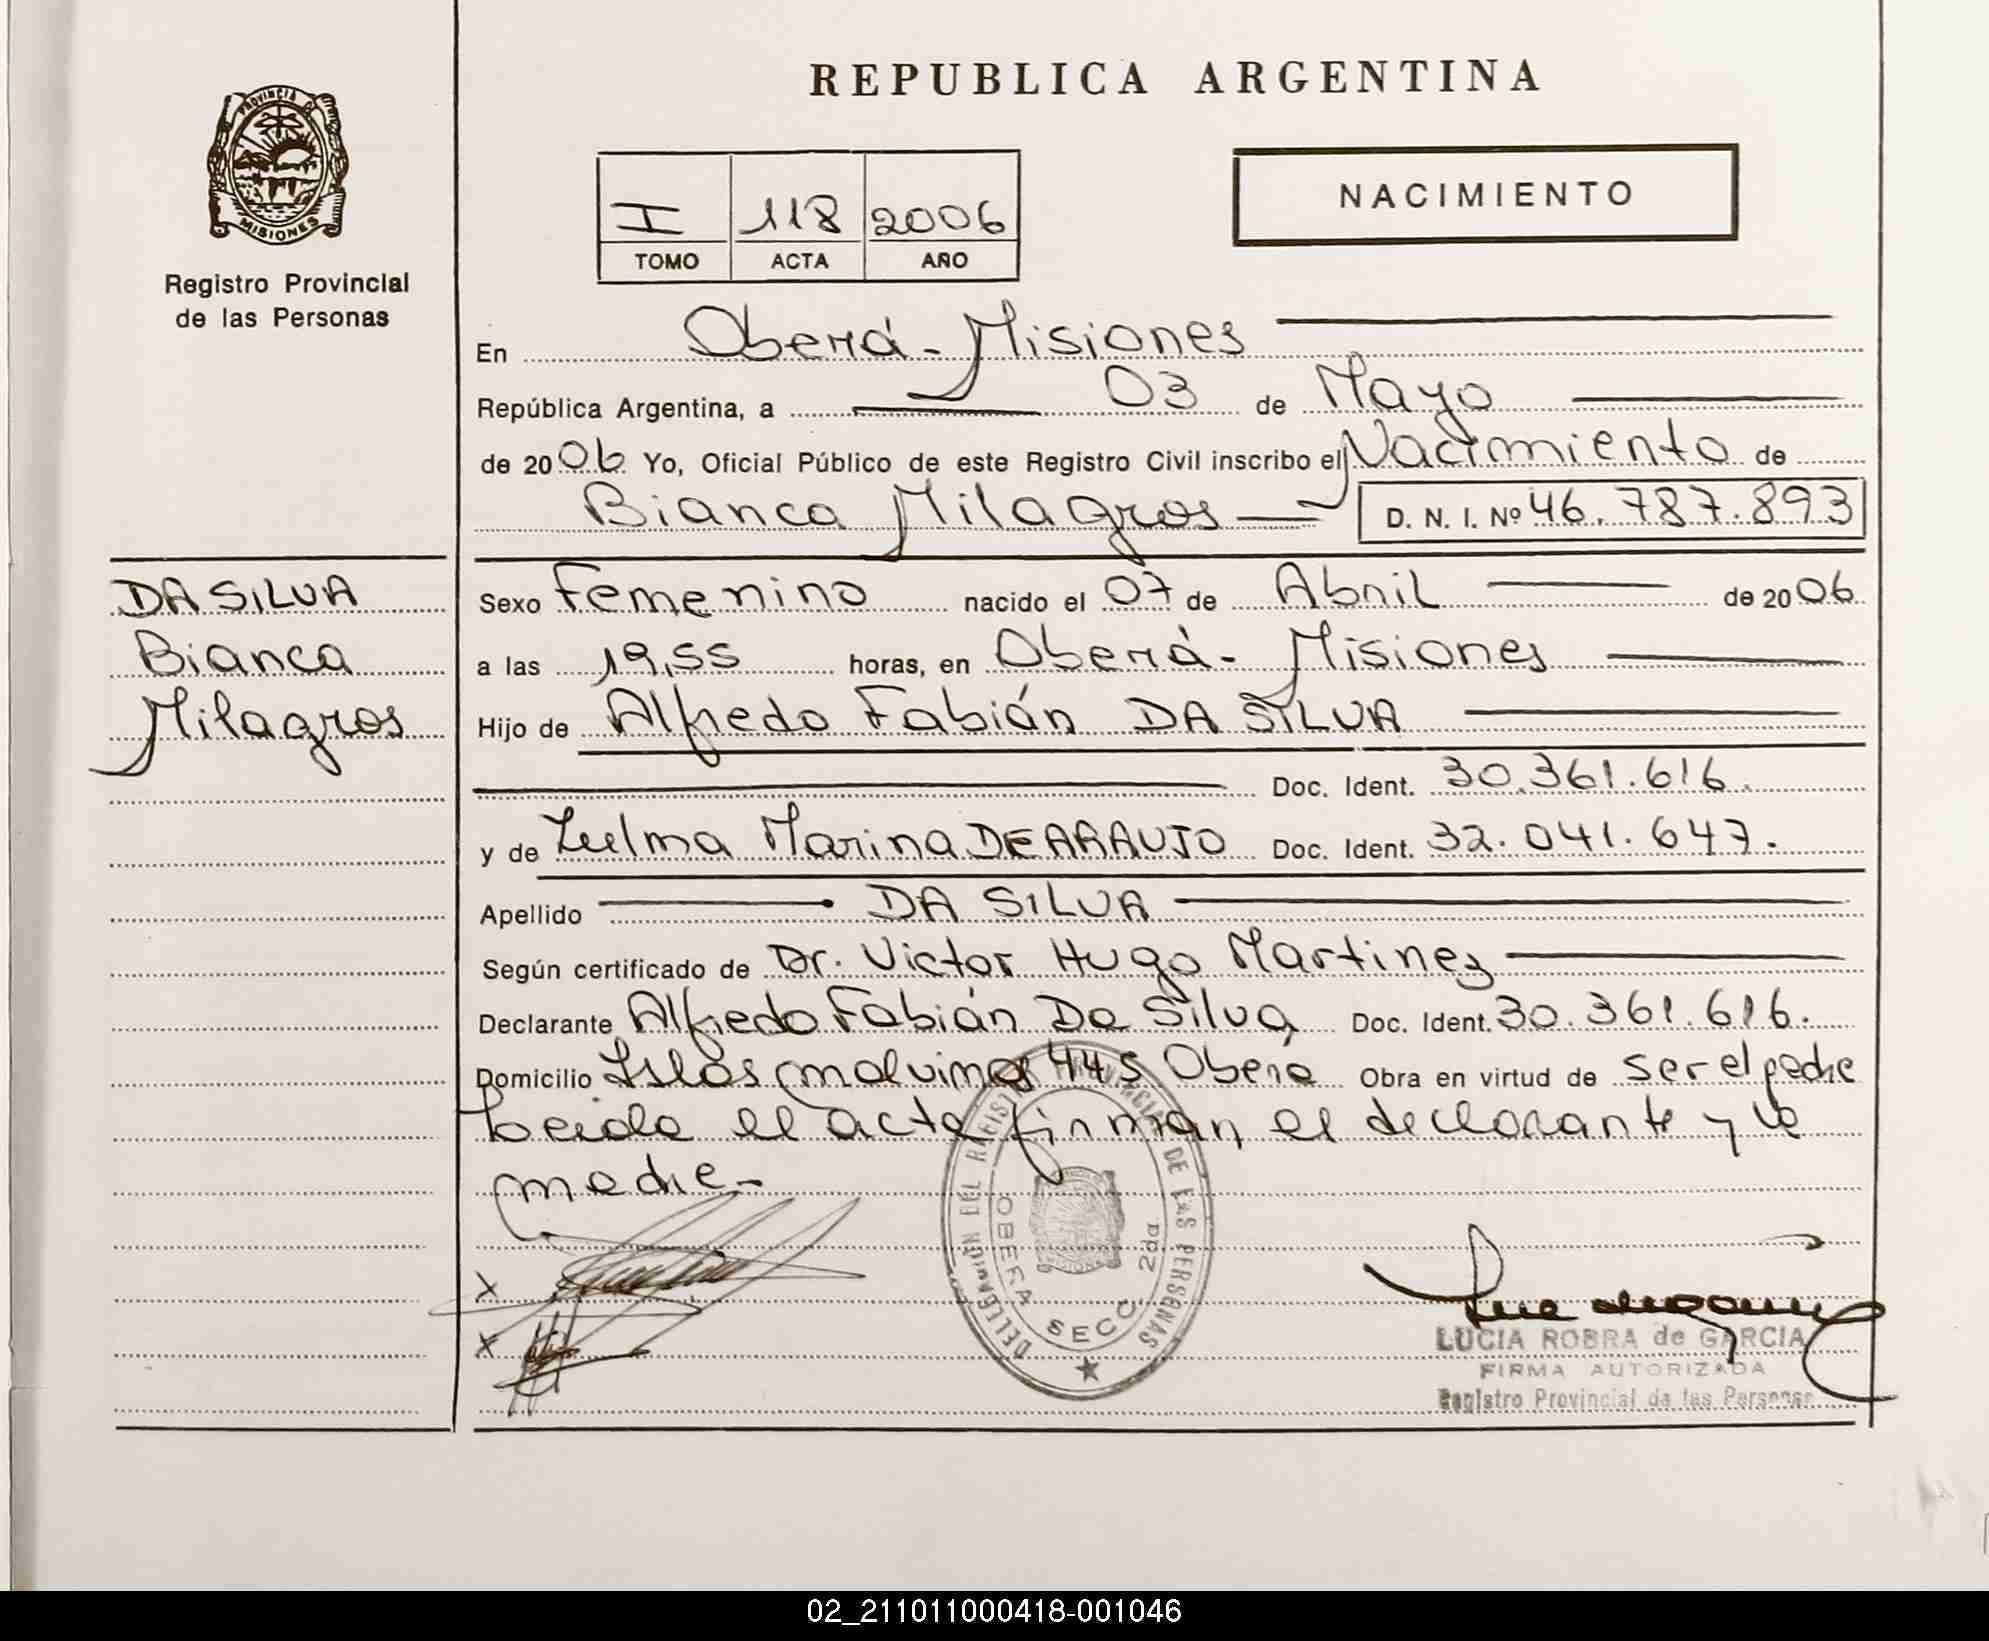 REPUBLICA ARGENTINA
PROVINCIA DE
MISIONES
Registro Provincial
de las Personas
I 118 2006
TOMO ACTA AÑO
NACIMIENTO
En Oberá - Misiones
República Argentina, a 03 de Mayo
de 2006 Yo, Oficial Público de este Registro Civil inscribo el Nacimiento de
Bianca Milagros D. N. I. Nº 46.787.893
DA SILVA
Bianca
Milagros
Sexo Femenino nacido el 07 de Abril de 2006
a las 19,55 horas, en Oberá - Misiones
Hijo de Alfredo Fabián DA SILVA
Doc. Ident. 30.361.616.
y de Zulma Marina DE ARAUJO Doc. Ident. 32.041.647.
Apellido DA SILVA
Según certificado de Dr. Victor Hugo Martinez
Declarante Alfredo Fabián Da Silva Doc. Ident. 30.361.616.
Domicilio Islas malvinas 445 Oberá Obra en virtud de ser el padre
Leida el acta firman el declarante y la
madre.-
DELEGACION DEL REGISTRO PROVINCIAL DE LAS PERSONAS
OBERA SECC. 2da
X
X
LUCIA ROBRA de GARCIA
FIRMA AUTORIZADA
Registro Provincial de las Personas
02_211011000418-001046